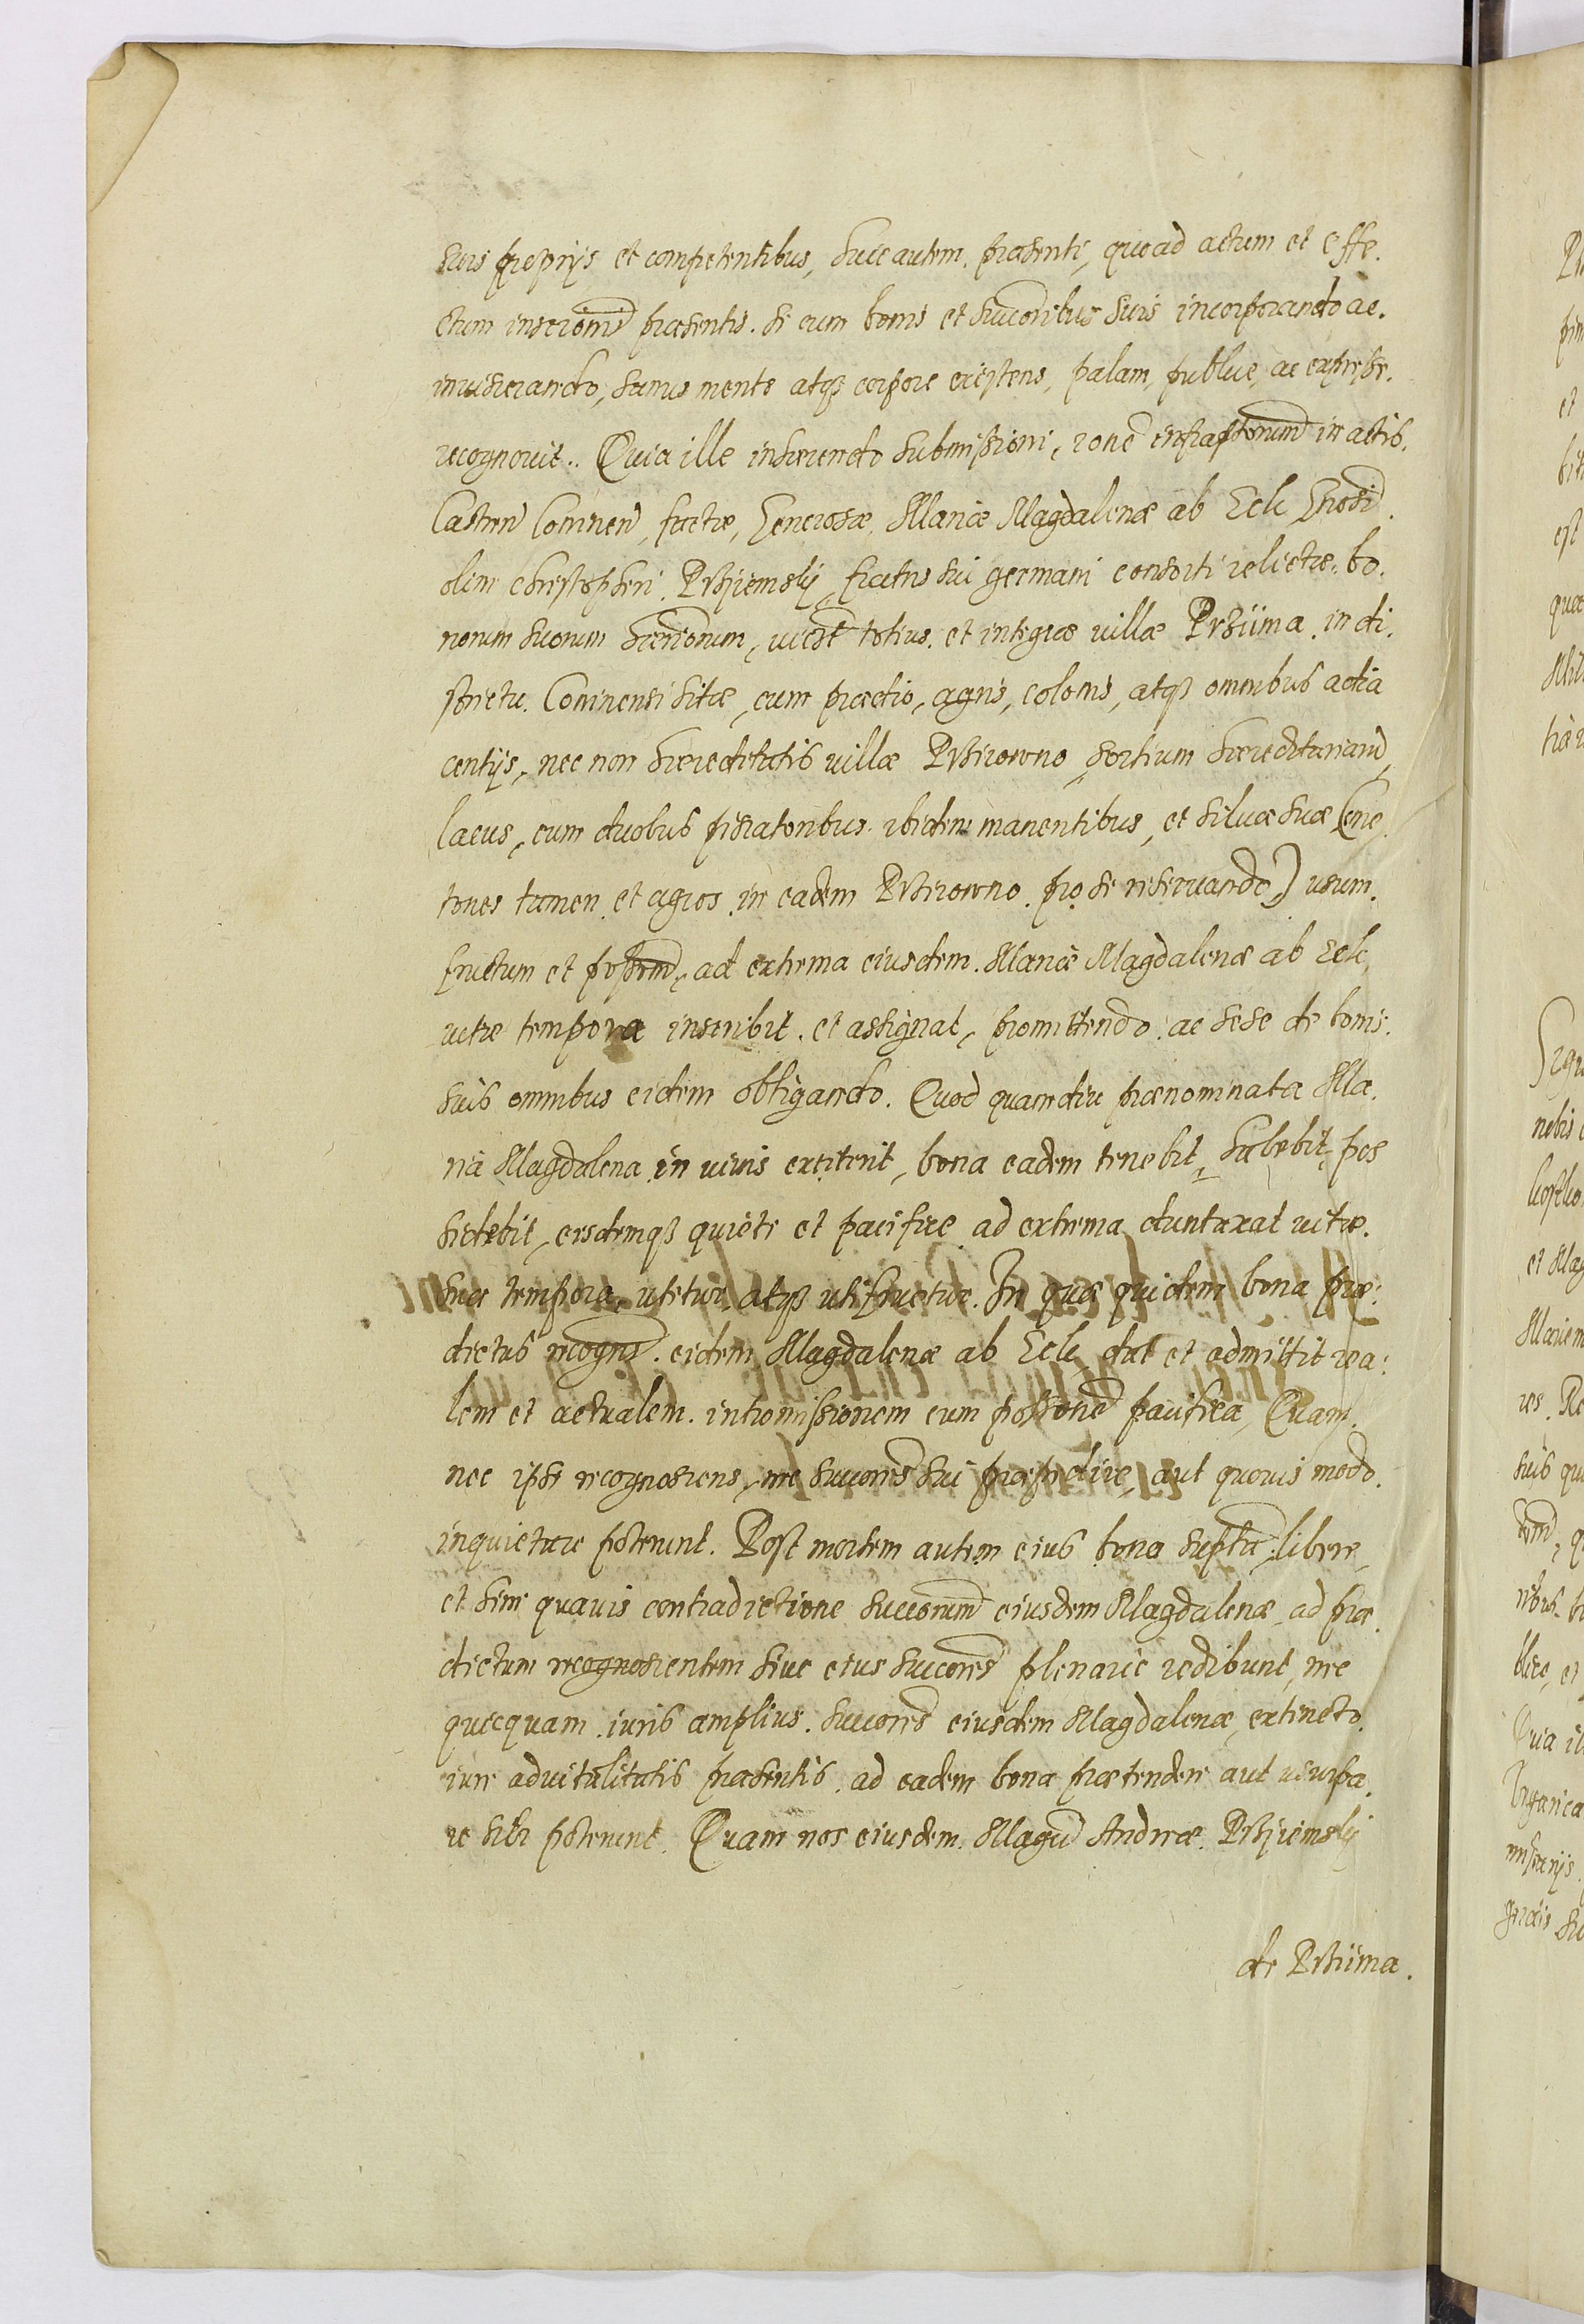 suis proprijs et competentibus, huic autem praesenti, quoad actum et effe.
ctum inscrionis praesentis. se cum bonis et succoribus suis incorporando ac.
inuiscerando, sanus mente atq3 corpore existens, palam, publice, ac expresse.
recognouit. Quia ille inhaerendo submissioni, rone infraptorum in actis.
Castren Coninen, factae, Generosae, Mariae Magdalenae ab Eck Gnosi
olim Christopheri Przyiemsky, fratris sui germani consorti relictae. bo.
norum suorum haeredum, uidelt totius. et integrae uillae Prziima. in di.
strictu. Coninensi sitae, cum praedio, agris, colonis, atq3 omnibus adia
centijs, nec non haereditatis uillae Przirowno, sortium haereditariarum,
lacus, cum duobus piscatoribus. ibidem manentibus, et siluae suae (Cme
tones tamen et agros in eadem Przirowno. pro se reseruando) usum.
fructum et possnem, ad extrema eiusdem. Mariae Magdalenae ab Eck
uitae tempora inscribit. et assignat, promittendo. ac sese de bonis.
suis omnibus eidem obligando. Quod quamdiu praenominata Ma.
ria Magdalena in uiuis extiterit, bona eadem tenebit, habebit, pos
sidebit, eisdemq3 quiete et pacifice ad extrema duntaxat uitae.
suae tempora, utetur, atq3 utifruetur. In quae quidem bona prae:
dictus recogns. eidem Magdalenae ab Eck dat et admittit rea:
lem et actualem. intromissionem cum possione pacifica, Quam.
nec ipse recognoscens, nec succores sui praepedire, aut quouis modo.
inquietare poterunt. Post mortem autem eius bona supta, libere,
et sine quauis contradictione succorum eiusdem Magdalenae, ad prae.
dictum recognoscentem siue eius succores plenarie redibunt, nec
quicquam iuris amplius. succores eiusdem Magdalenae, extincto.
iure aduitalitatis praesentis. ad eadem bona praetendere aut usurpa.
re sibi poterunt. Quam nos eiusdem. Magci Andreae. Przyiemsky
de Prziima.